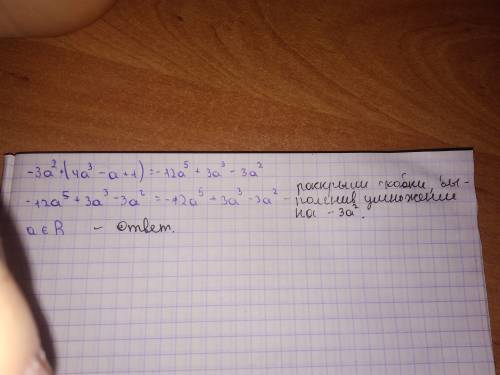 -3a² · (4a³ - a + 1) = -12a⁵ + 3a³ - 3a²
-12a⁵ + 3a³ - 3a² = -12a⁵ + 3a³ - 3a² - раскрыли скобки, вы-
полнив умножение
на -3a².
a ∈ R - ответ.